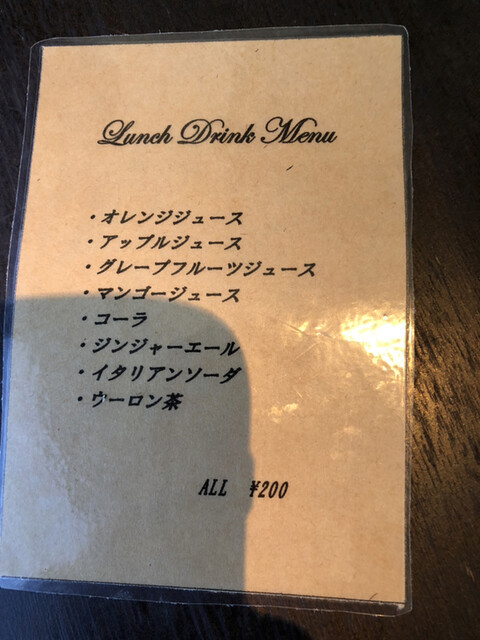 Lunch Drink Menu
・オレンジジュース
・アップルジュース
・グレープフルーツジュース
・マンゴージュース
・コーラ
・ジンジャーエール
・イタリアンソーダ
・ウーロン茶
ALL ¥200